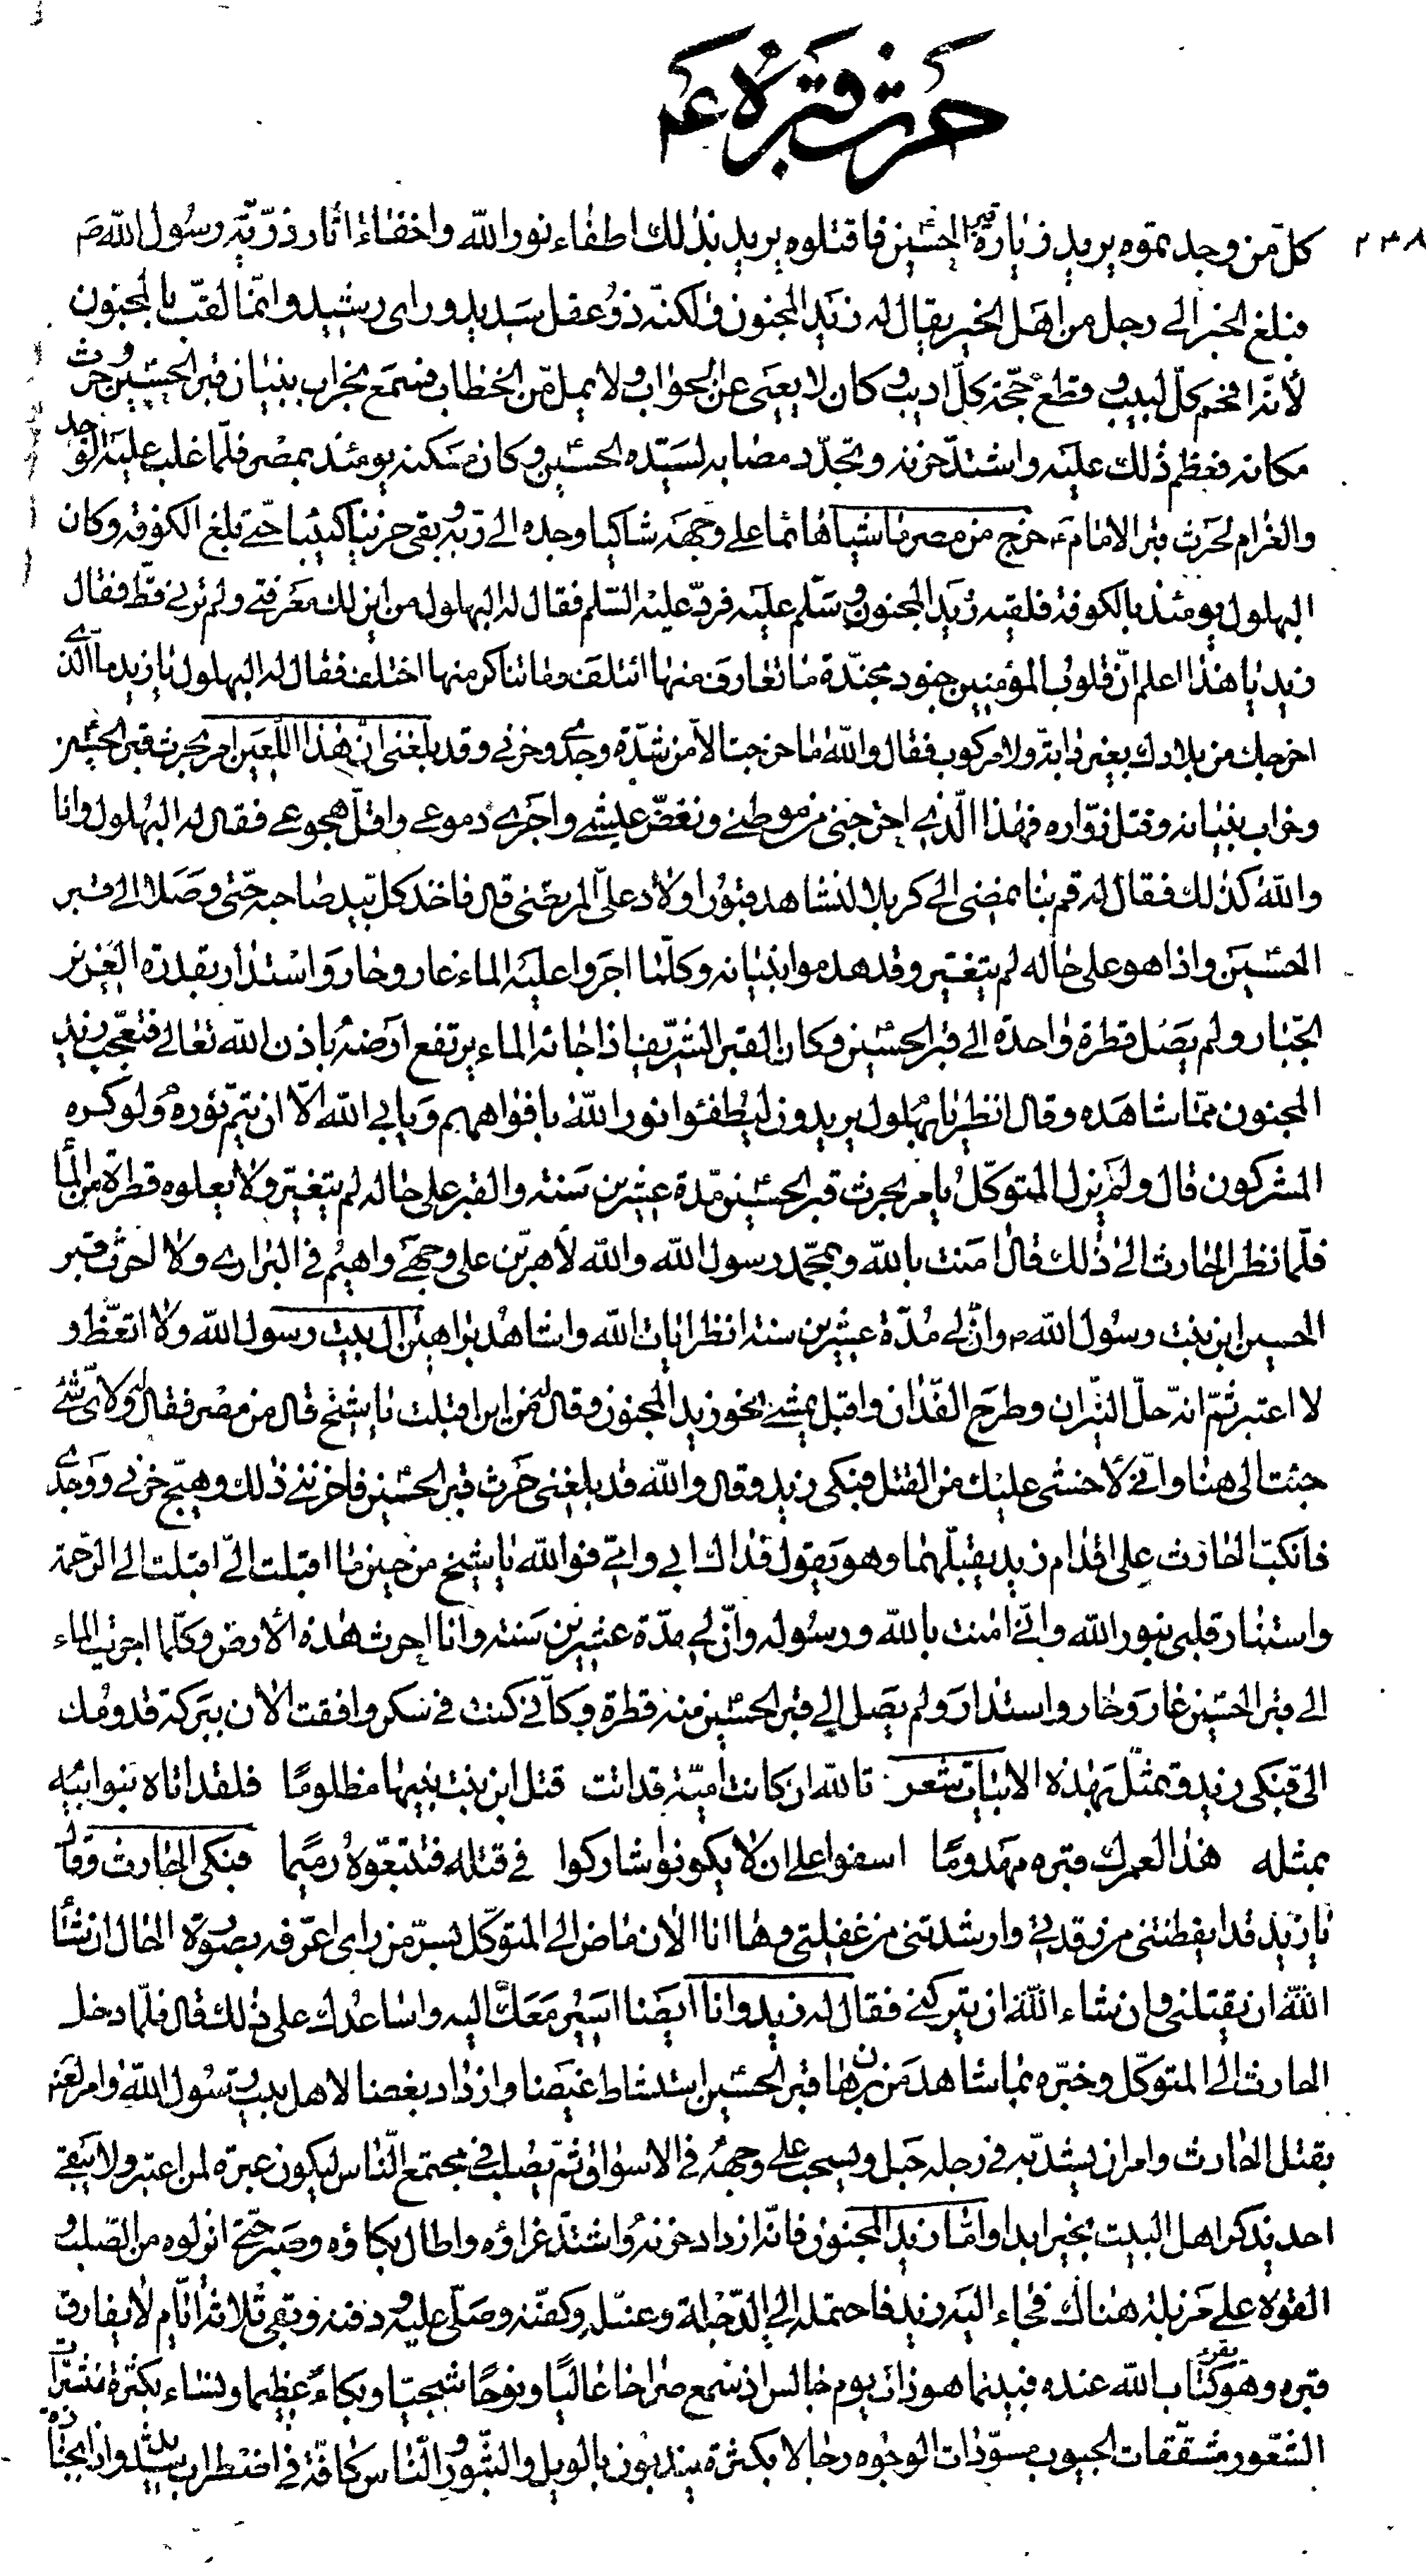 حرث قبره ع‍
٢٣٨
كلّ من وجدتموه يريد زيارة قبر الحسين فاقتلوه يريد بذلك اطفاء نور الله واخفاء اثار ذرّيّة رسول الله ص
فبلغ الخبر الى رجل من اهل الخير يقال له زيد المجنون ولكنّه ذو عقل سديد وراى رشيد وانّما لقّب بالمجنون
لأنّه افحم كلّ لبيب وقطع حجّة كلّ اديب وكان لا يعيى عن الجواب ولا يملّ من الخطاب فسمع بخراب بنيان قبر الحسين وحرث
مكانه فعظم ذلك عليه واشتدّ حزنه وتجدّد مصابه لسيّده الحسين وكان مسكنه يومئذ بمصر فلمّا غلب عليه الوجد
والغرام لحرث قبر الامام ع خرج من مصر ماشيا هائما على وجهه شاكيا وجده الى ربّه وبقى حزينا كئيبا حتّى بلغ الكوفة وكان
البهلول يومئذ بالكوفة فلقيه زيد المجنون وسلّم عليه فردّ عليه السّلم فقال له البهلول من اين لك معرفتى ولم ترنى قطّ فقال
زيد يا هذا اعلم انّ قلوب المؤمنين جنود مجنّدة ما تعارف منها ائتلف وما تناكر منها اختلف فقال له البهلول يا زيد ما الّذى
اخرجك من بلادك بغير دابّة ولا مركوب فقال والله ما خرجت الاّ من شدّة وجدى وحزنى وقد بلغنى انّ هذا اللّعين امر بحرث قبر الحسين
وخراب بنيانه وقتل زوّاره فهذا الّذى اخرجنى من موطنى ونغّص عيشى واجرى دموعى واقلّ هجوعى فقال له البهلول وانا
والله كذلك فقال له قم بنا نمضى الى كربلا لنشاهد قبور اولاد علىّ المرتضى قال فاخذ كلّ بيد صاحبه حتّى وصلا الى قبر
الحسين واذا هو على حاله لم يتغيّر وقد هدموا بنيانه وكلّما اجروا عليه الماء غار وحار واستدار بقدرة العزيز
الجّبار ولم يصل قطرة واحدة الى قبر الحسين وكان القبر الشّريف اذا جائه الماء يرتفع ارضه باذن الله تعالى فتعجّب زيد
المجنون ممّا شاهده وقال انظر يا بهلول يريدون ليطفئوا نور الله بافواههم ويابى الله الاّ ان يتمّ نوره ولو كره
المشركون قال ولم يزل المتوكّل يامر بحرث قبر الحسين مدّة عشرين سنة والقبر على حاله لم يتغيّر ولا يعلوه قطرة من الماء
فلّما نظر الحارث الى ذلك قال امنت بالله وبمحمّد رسول الله والله لأهربّن على وجهى واهيم فى البرارى ولا احرث قبر
الحسين ابن بنت رسول الله ص وانّ لى مدّة عشرين سنة انظر ايات الله واشاهد براهين ال بيت رسول الله ولا اتّعظ و
لا اعتبر ثمّ انه حلّ النّيران وطرح الفدّان واقبل يمشى نحو زيد المجنون وقال له من اين اقبلت يا شيخ قال من مصر فقال له ولاىّ شئ
جئت الى هنا وانّى لأخشى عليك من القتل فبكى زيد وقال والله قد بلغنى حرث قبر الحسين فاحزننى ذلك وهيّج حزنى ووجدى
فانكبّ الحارث على اقدام زيد يقبّلهما وهو يقول فداك ابى وامّى فوالله يا شيخ من حين ما اقبلت الىّ اقبلت الى الرّحمة
واستنار قلبى بنور الله وانّى امنت بالله ورسوله وانّ لى مدّة عشرين سنة وانا احرث هذه الأرض وكلّما اجريت الماء
الى قبر الحسين غار وحار واستدار ولم يصل الى قبر الحسين منه قطرة وكانّى كنت فى سكر وافقت الان ببركة قدومك
الىّ فبكى زيد وتمثّل بهذه الابيات شعر تالله ان كانت اميّة قد اتت قتل ابن بنت نبيها مظلومًا فلقد اتاه بنو ابيه
بمثله هذا لعمرك قبره مهدومًا اسفوا على ان لا يكونوا شاركوا فى قتله فتتبّعوه رميما فبكى الحارث وقال
يا زيد قد ايقظتنى من رقدتى وارشدتنى من غفلتى وها انا الان ماض الى المتوكّل بسرّ من راى اعرّفه بصورة الحال ان شاء
الله ان يقتلنى وان شاء الله ان يتركنى فقال له زيد وانا ايضا اسير معك اليه واساعدك على ذلك قال فلّما دخل
الحارث الى المتوكّل وخبّره بما شاهد من برهان قبر الحسين استشاط غيضا وازداد بغضا لاهل بيت رسول الله وامر
بقتل الحارث وامر ان يشدّ به فى رجله حبل ويسحب على وجهه فى الاسواق ثمّ يصلب فى مجتمع النّاس ليكون عبرة لمن اعتبر ولا يبقى
احد يذكر اهل البيت بخير ابدا وامّا زيد المجنون فانّه ازداد حزنه واشتدّ عزاؤه واطال بكاؤه وصبر حتّى انزلوه من الصّلب و
القوه على مزبلة هناك فجاء اليه زيد فاحتمله الى الدّجلة وغسّله وكفّنه وصلّى عليه ودفنه وبقى ثلاثة ايّام لا يفارق
قبره وهو يقرء كتاب الله عنده فبينما هو ذات يوم جالس اذ سمع صراخا عاليًا ونوحًا شجيّا وبكاءً عظيما ونساء بكثرة منشّرات
الشّعور مشقّقات الجيوب مسوّدات الوجوه ورجالا بكثرة يندبون بالويل والثّبور والنّاس كافّة فى اضطراب شديد واذا بجنازة